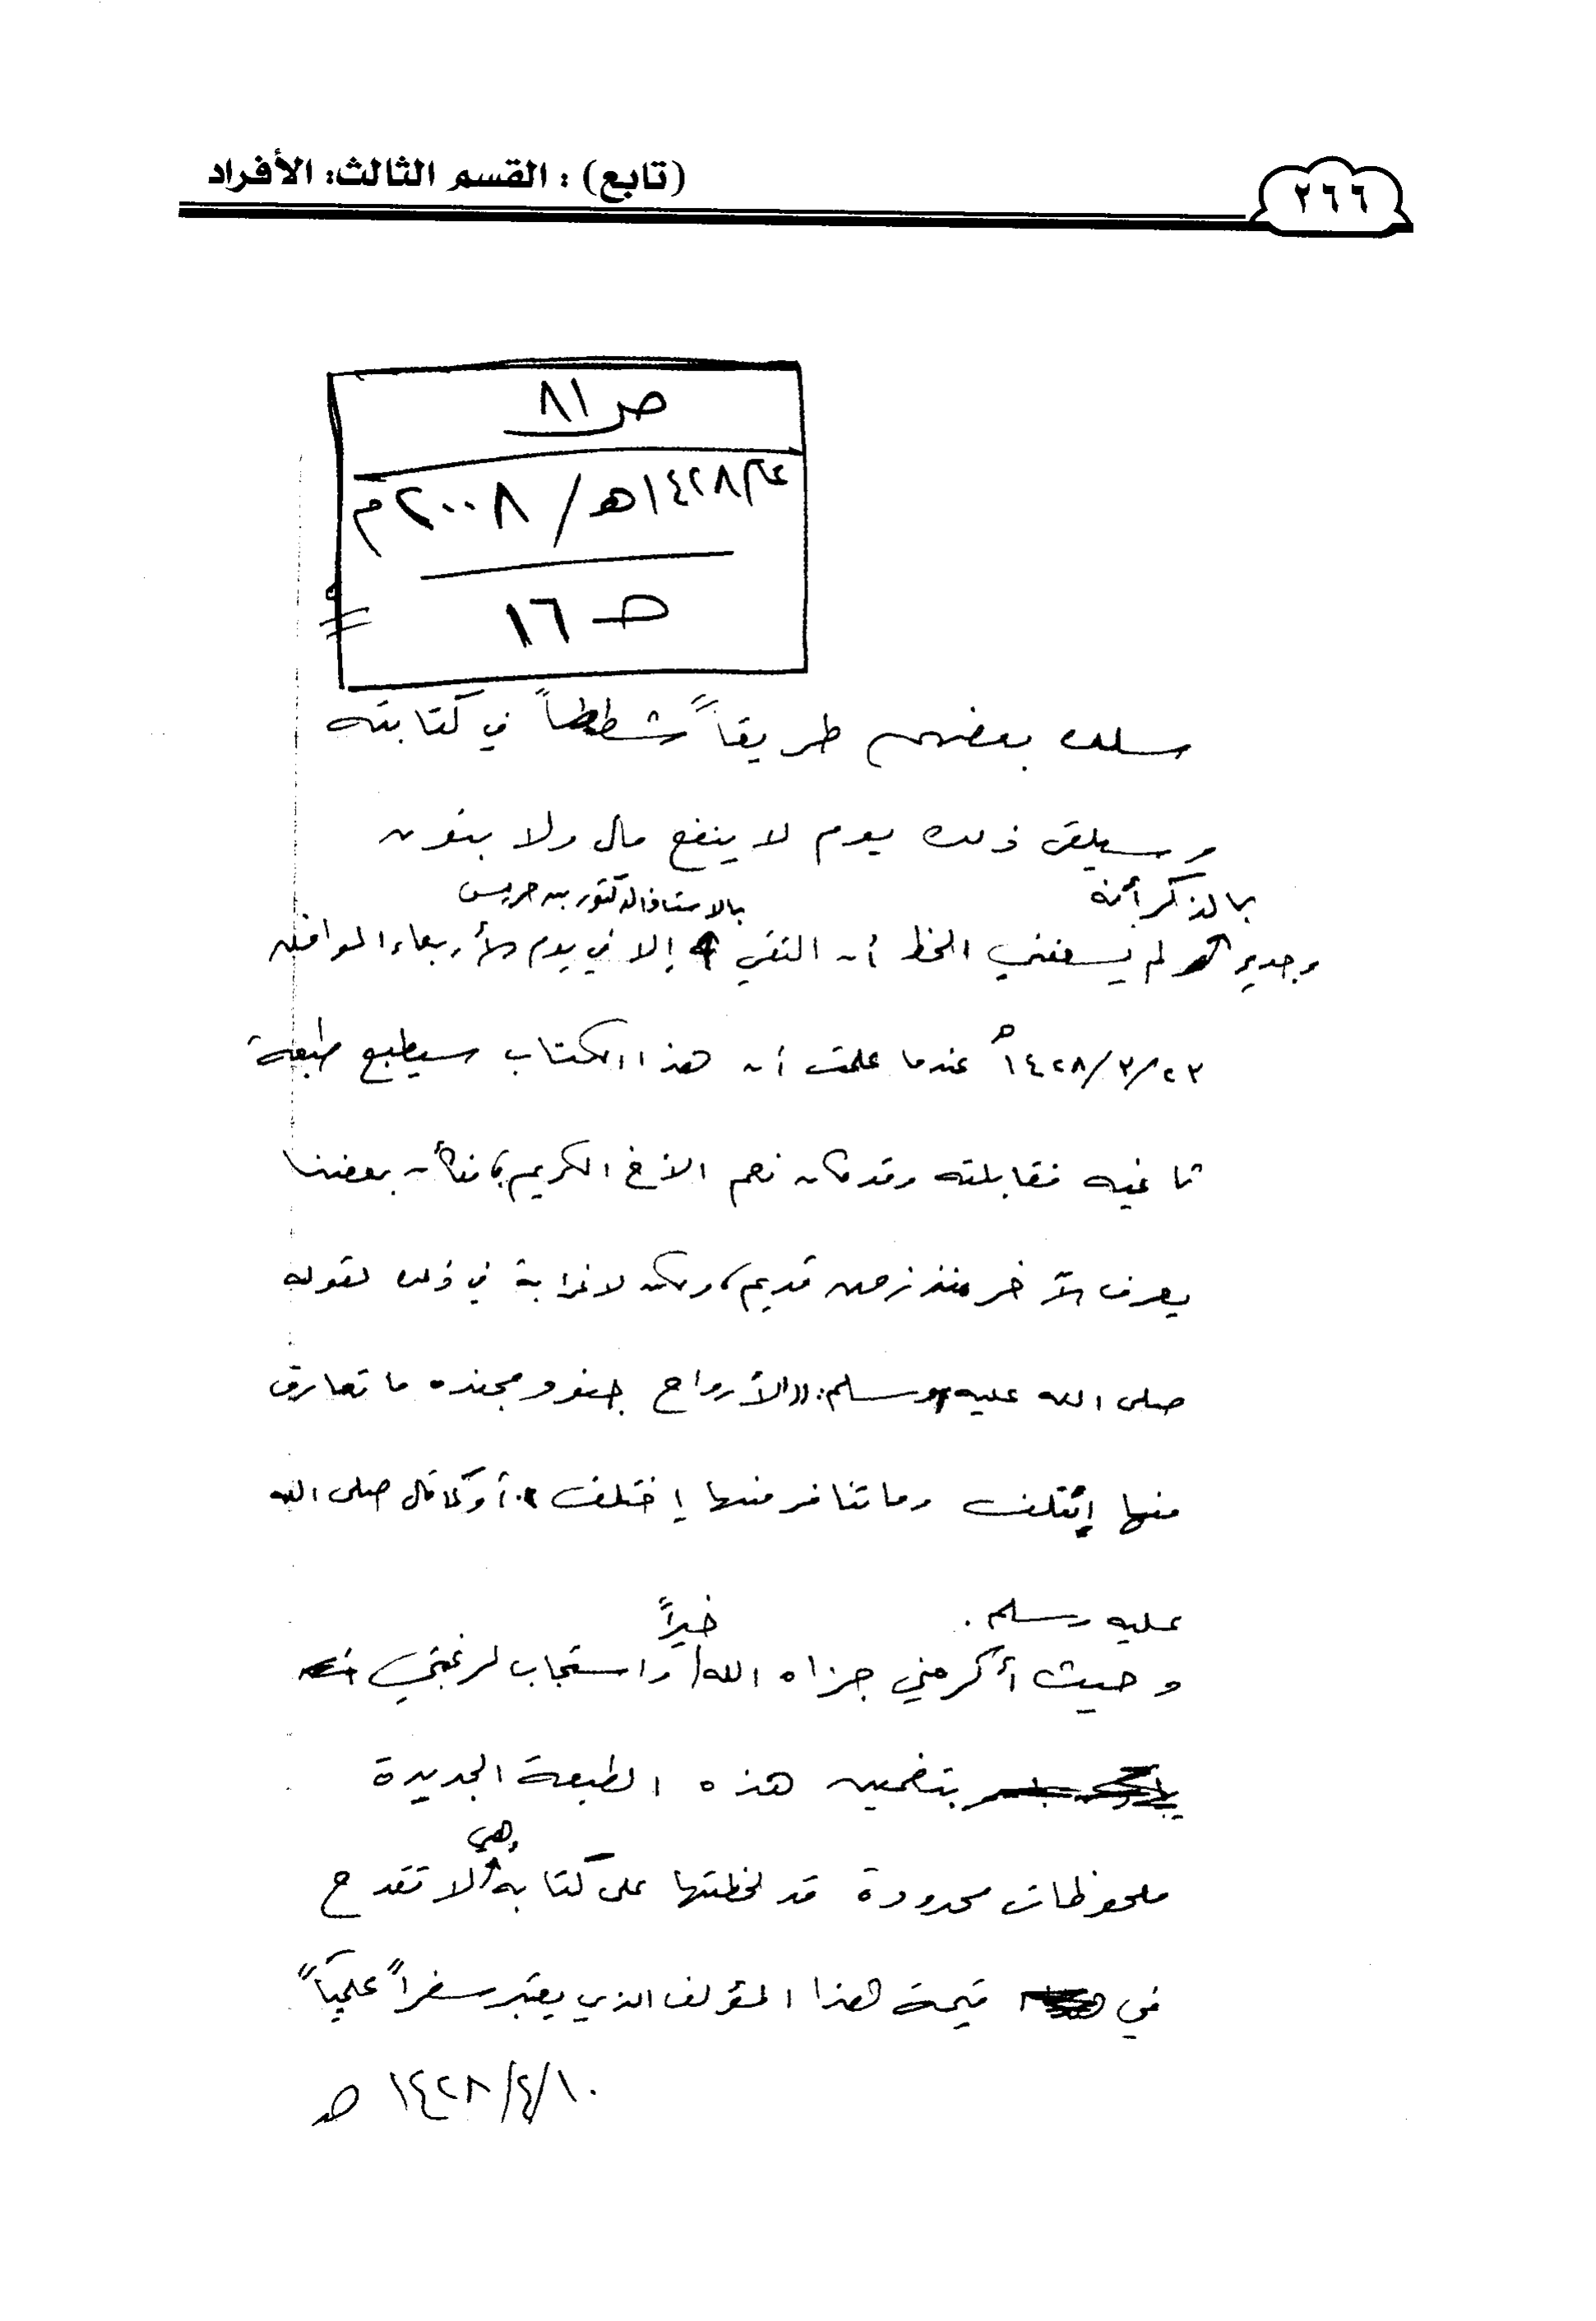 ٢٦٦
(تابع) : القسم الثالث: الأفراد
ص٨١
عام ١٤٢٨هـ / ٢٠٠٨م
صـ ١٦
سلك بعضهم طريقاً شططاً في كتابته
وسيلقى ذلك يوم لا ينفع مال ولا بنون
وجدير بالذكر أنه لم يسعفني الحظ أن التقي بالاستاذ الدكتور بن جريس إلا في يوم الأربعاء الموافق
٢٣/٣/١٤٢٨هـ عندما علمت أن هذا الكتاب سيطبع طبعة
ثانيه فقابلته وقد كان نعم الأخ الكريم، فكأن بعضنا
يعرف الآخر منذ زمن قديم، ولكن لا غرابة في ذلك لقوله
صلى الله عليه وسلم: ((الأرواح جنود مجنده ما تعارف
منها إئتلف وما تنافر منها إختلف، أو كما قال صلى الله
عليه وسلم.
وحيث أكرمني جزاه الله خيراً واستجاب لرغبتي
بتضمين هذه الطبعة الجديدة
ملحوظات محدودة قد لحظتها على كتابه وهي لا تقدح
في قيمة هذا المؤلف الذي يعتبر سفراً علمياً
١٠/٤/١٤٢٨ هـ